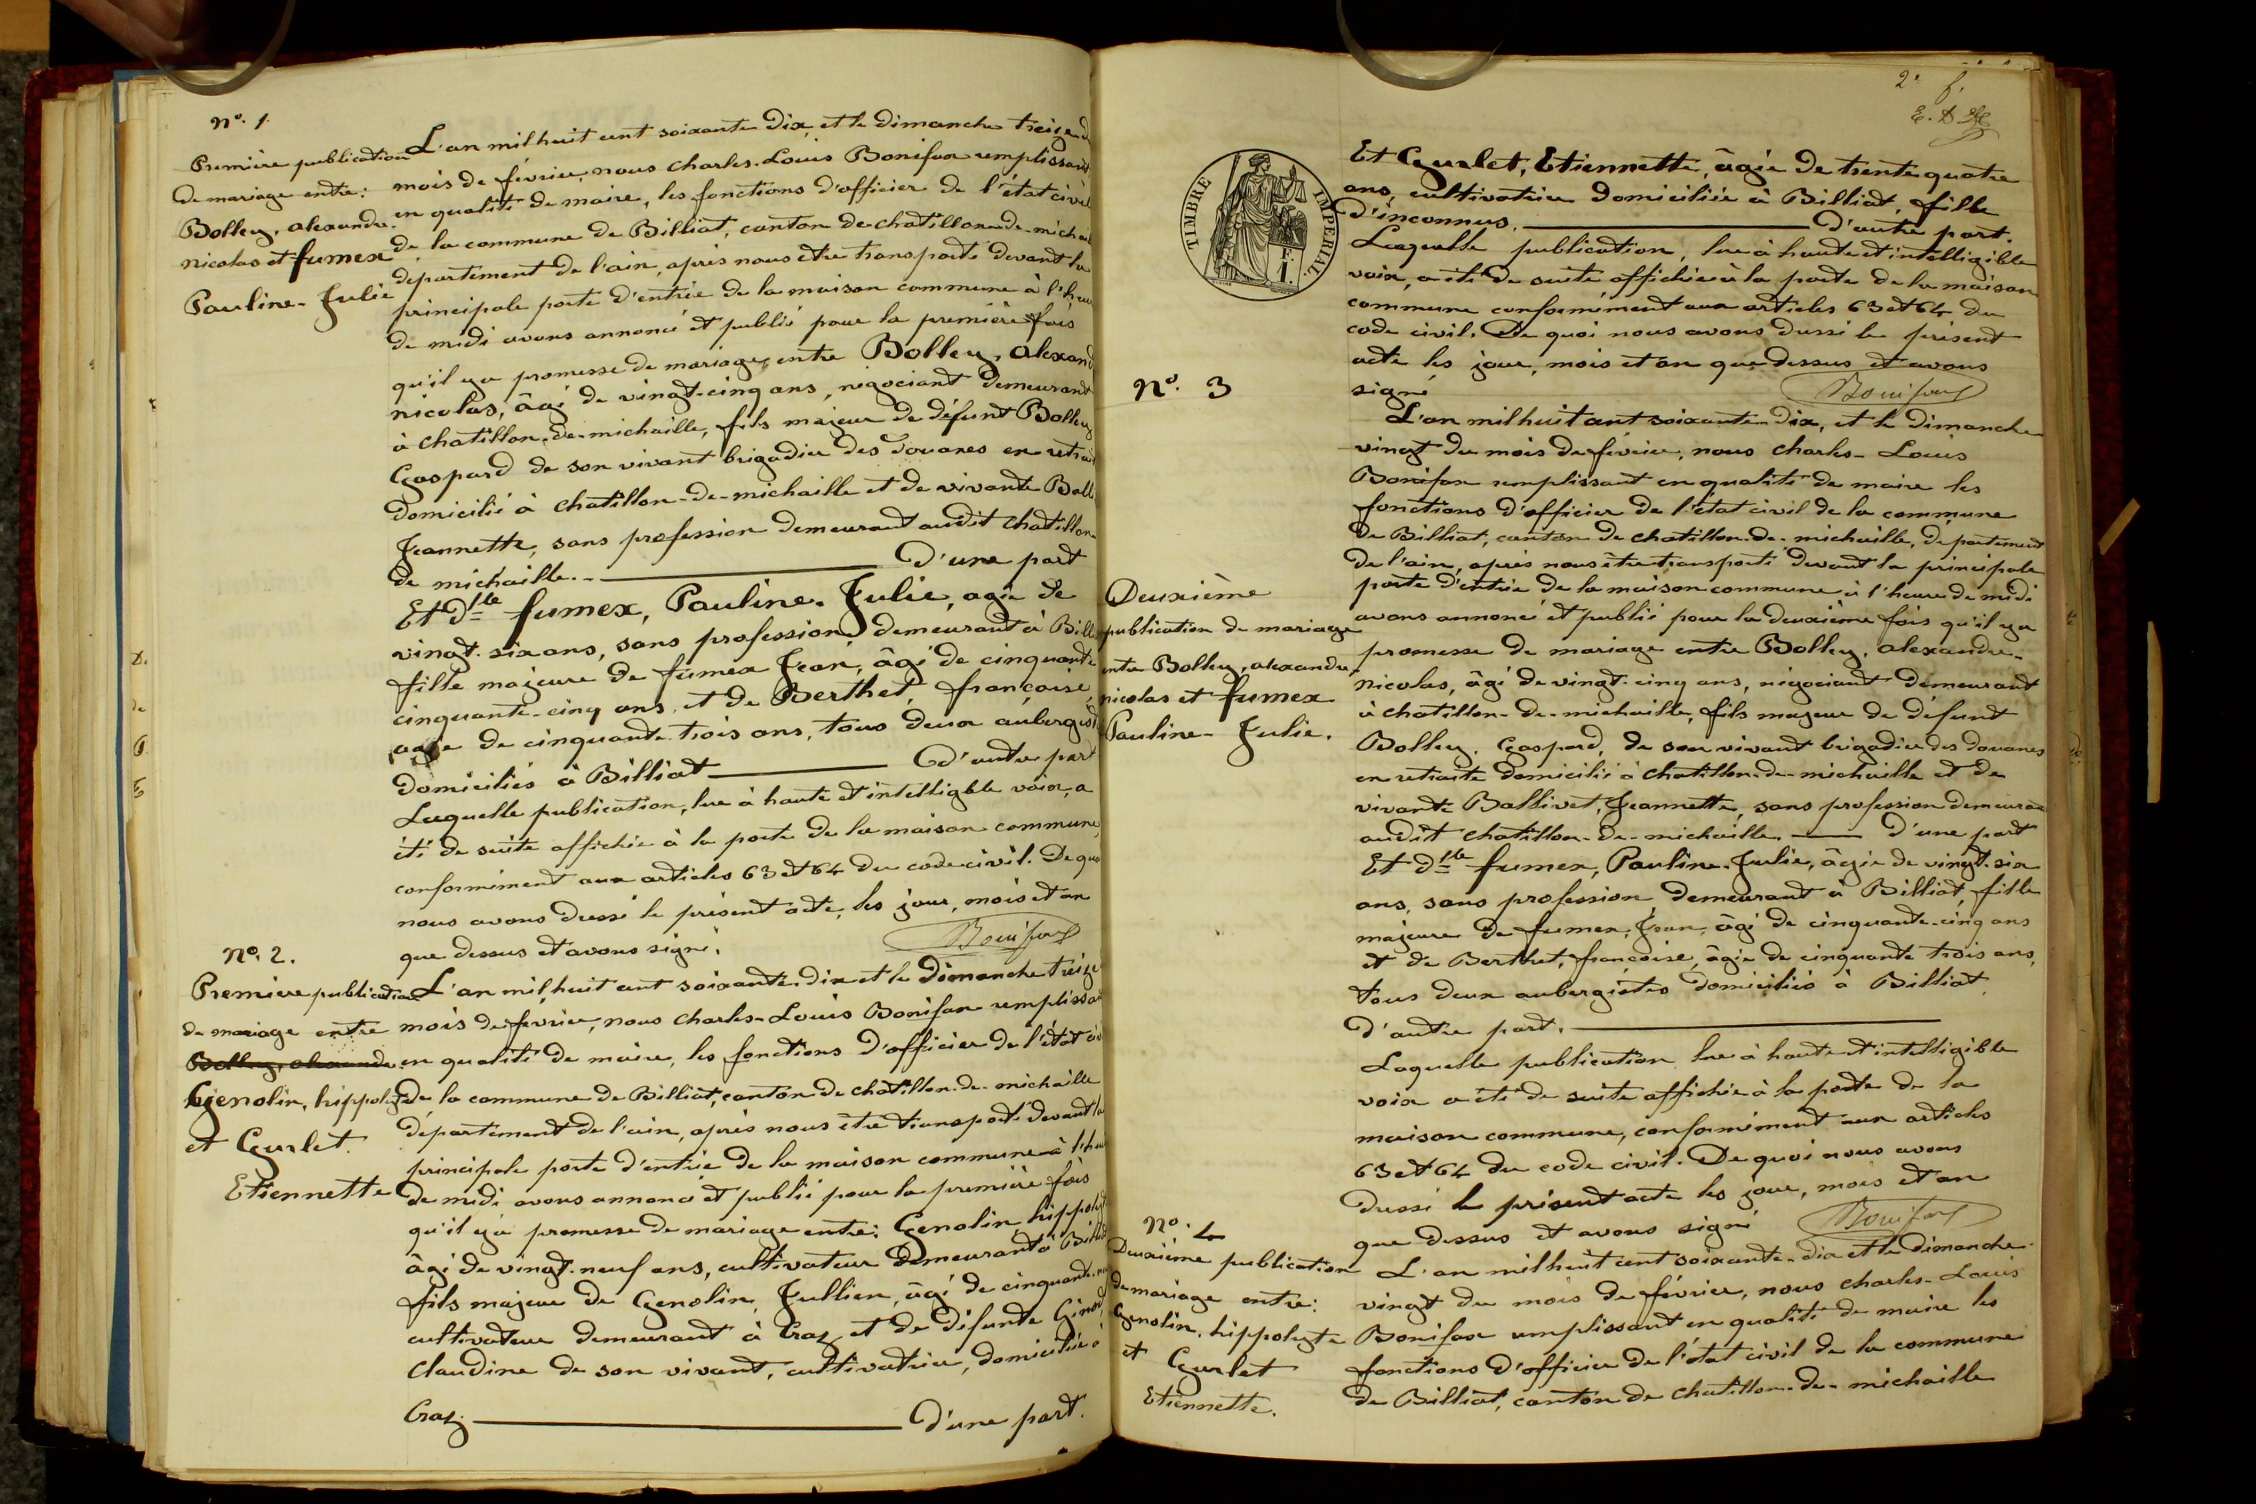 N° 1.
Première publication
de mariage entre:
Bolley, alexandre
nicolas et fumex
Pauline-Julie
L'an mil huit cent soixante dix, et le dimanche treize du
mois de février, nous charles-Louis Bonifax remplissant
en qualité de maire, les fonctions d'officier de l'état civil
de la commune de Billiat, canton de chatillon-de-michai
département de l'ain, après nous être transporté devant la
principale porte d'entrée de la maison commune à l'heu
de midi avons annoncé et publié pour la première fois
qu'il y a promesse de mariage, entre Bolley, Alexand
nicolas, âgé de vingt-cinq ans, négociant demeurant
à chatillon-de-michaille, fils majeur de défunt Bolley
Gaspard de son vivant brigadier des Douanes en retrai
domicilié à chatillon-de-michaille et de vivante Ball
Jeannette, sans profession demeurant audit chatillon
de michaille. D'une part
Et Dlle fumex, Pauline-Julie, agée de
vingt-six ans, sans profession demeurant à Bill
fille majeure de fumex Jean, âgé de cinquante
cinquante-cinq ans, et de Berthet, françoise
agée de cinquante-trois ans, tous deux aubergist
domiciliés à Billiat D'autre part
Laquelle publication, lue à haute et intelligble voix, a
été de suite affichée à la porte de la maison commune,
conformément aux articles 63 et 64 du code civil. De quoi
nous avons dressé le présent acte, les jour, mois et an
que dessus et avons signé.
Bonifax
N° 2.
Première publication
de mariage entre
Bolley, alexandre
Genolin, hippolyte
et Gurlet
Etiennette
L'an mil huit cent soixante-dix et le dimanche treize
mois de février, nous charles-Louis Bonifax remplissan
en qualité de maire, les fonctions d'officier de l'état ci
de la commune de Billiat, canton de chatillon-de-michaille
département de l'ain, après nous être transporté devant la
principale porte d'entrée de la maison commune à l'heu
de midi avons annoncé et publié pour la première fois
qu'il y a promesse de mariage entre: Genolin hippolyt
âgé de vingt-neuf ans, cultivateur demeurant à Billiat
fils majeur de Genolin, Jullien, âgé de cinquante-
cultivateur demeurant à Craz, et de défunte
Claudine de son vivant, cultivatrice, domiciliée à
Craz. D'une part.
2. f.
Et Gurlet, Etiennette, âgée de trente quatre
ans, cultivatrice domiciliée à Billiat, fille
d'inconnus. D'autre part.
TIMBRE IMPERIAL
Laquelle publication, lue à haute et intelligible
voix, a été de suite affichée à la porte de la maison
commune conformément aux articles 63 et 64 du
code civil. De quoi nous avons dressé le présent
acte les jour, mois et an que dessus et avons
signé
Bonifax
N° 3
Deuxième
publication de mariage
entre Bolley, alexandre
nicolas et fumex
Pauline-Julie.
L'an mil huit cent soixante-dix, et le dimanche
vingt du mois de février, nous charles-Louis
Bonifax remplissant en qualité de maire les
fonctions d'officier de l'état civil de la commune
de Billiat, canton de chatillon-de-michaille, département
de l'ain, après nous être transporté devant la principale
porte d'entrée de la maison commune à l'heure de midi
avons annoncé et publié pour la deuxième fois qu'il y a
promesse de mariage entre Bolley, alexandre-
nicolas, âgé de vingt-cinq ans, négociant demeurant
à chatillon-de-michaille, fils majeur de défunt
Bolley, Gaspard, de son vivant brigadier des douanes
en retraite domicilié à chatillon-de-michaille et de
vivante Ballivet, Jeannette, sans profession demeurant
audit chatillon-de-michaille. d'une part
Et Dlle fumex, Pauline-Julie, âgée de vingt-six
ans, sans profession, demeurant à Billiat, fille
majeure de fumex, Jean, âgé de cinquante-cinq ans
et de Berthet, françoise, âgée de cinquante trois ans,
tous deux aubergistes domiciliés à Billiat.
d'autre part.
Laquelle publication lue à haute et intelligible
voix a été de suite affichée à la porte de la
maison commune, conformément aux articles
63 et 64 du code civil. De quoi nous avons
dressé le présent acte les jour, mois et an
que dessus et avons signé
Bonifax
N° 4
Deuxième publication
de mariage entre:
Genolin, hippolyte
et Gurlet
Etiennette.
L'an mil huit cent soixante-dix et le dimanche
vingt du mois de février, nous charles-Louis
Bonifax remplissant en qualité de maire les
fonctions d'officier de l'état civil de la commune
de Billiat, canton de chatillon-de-michaille